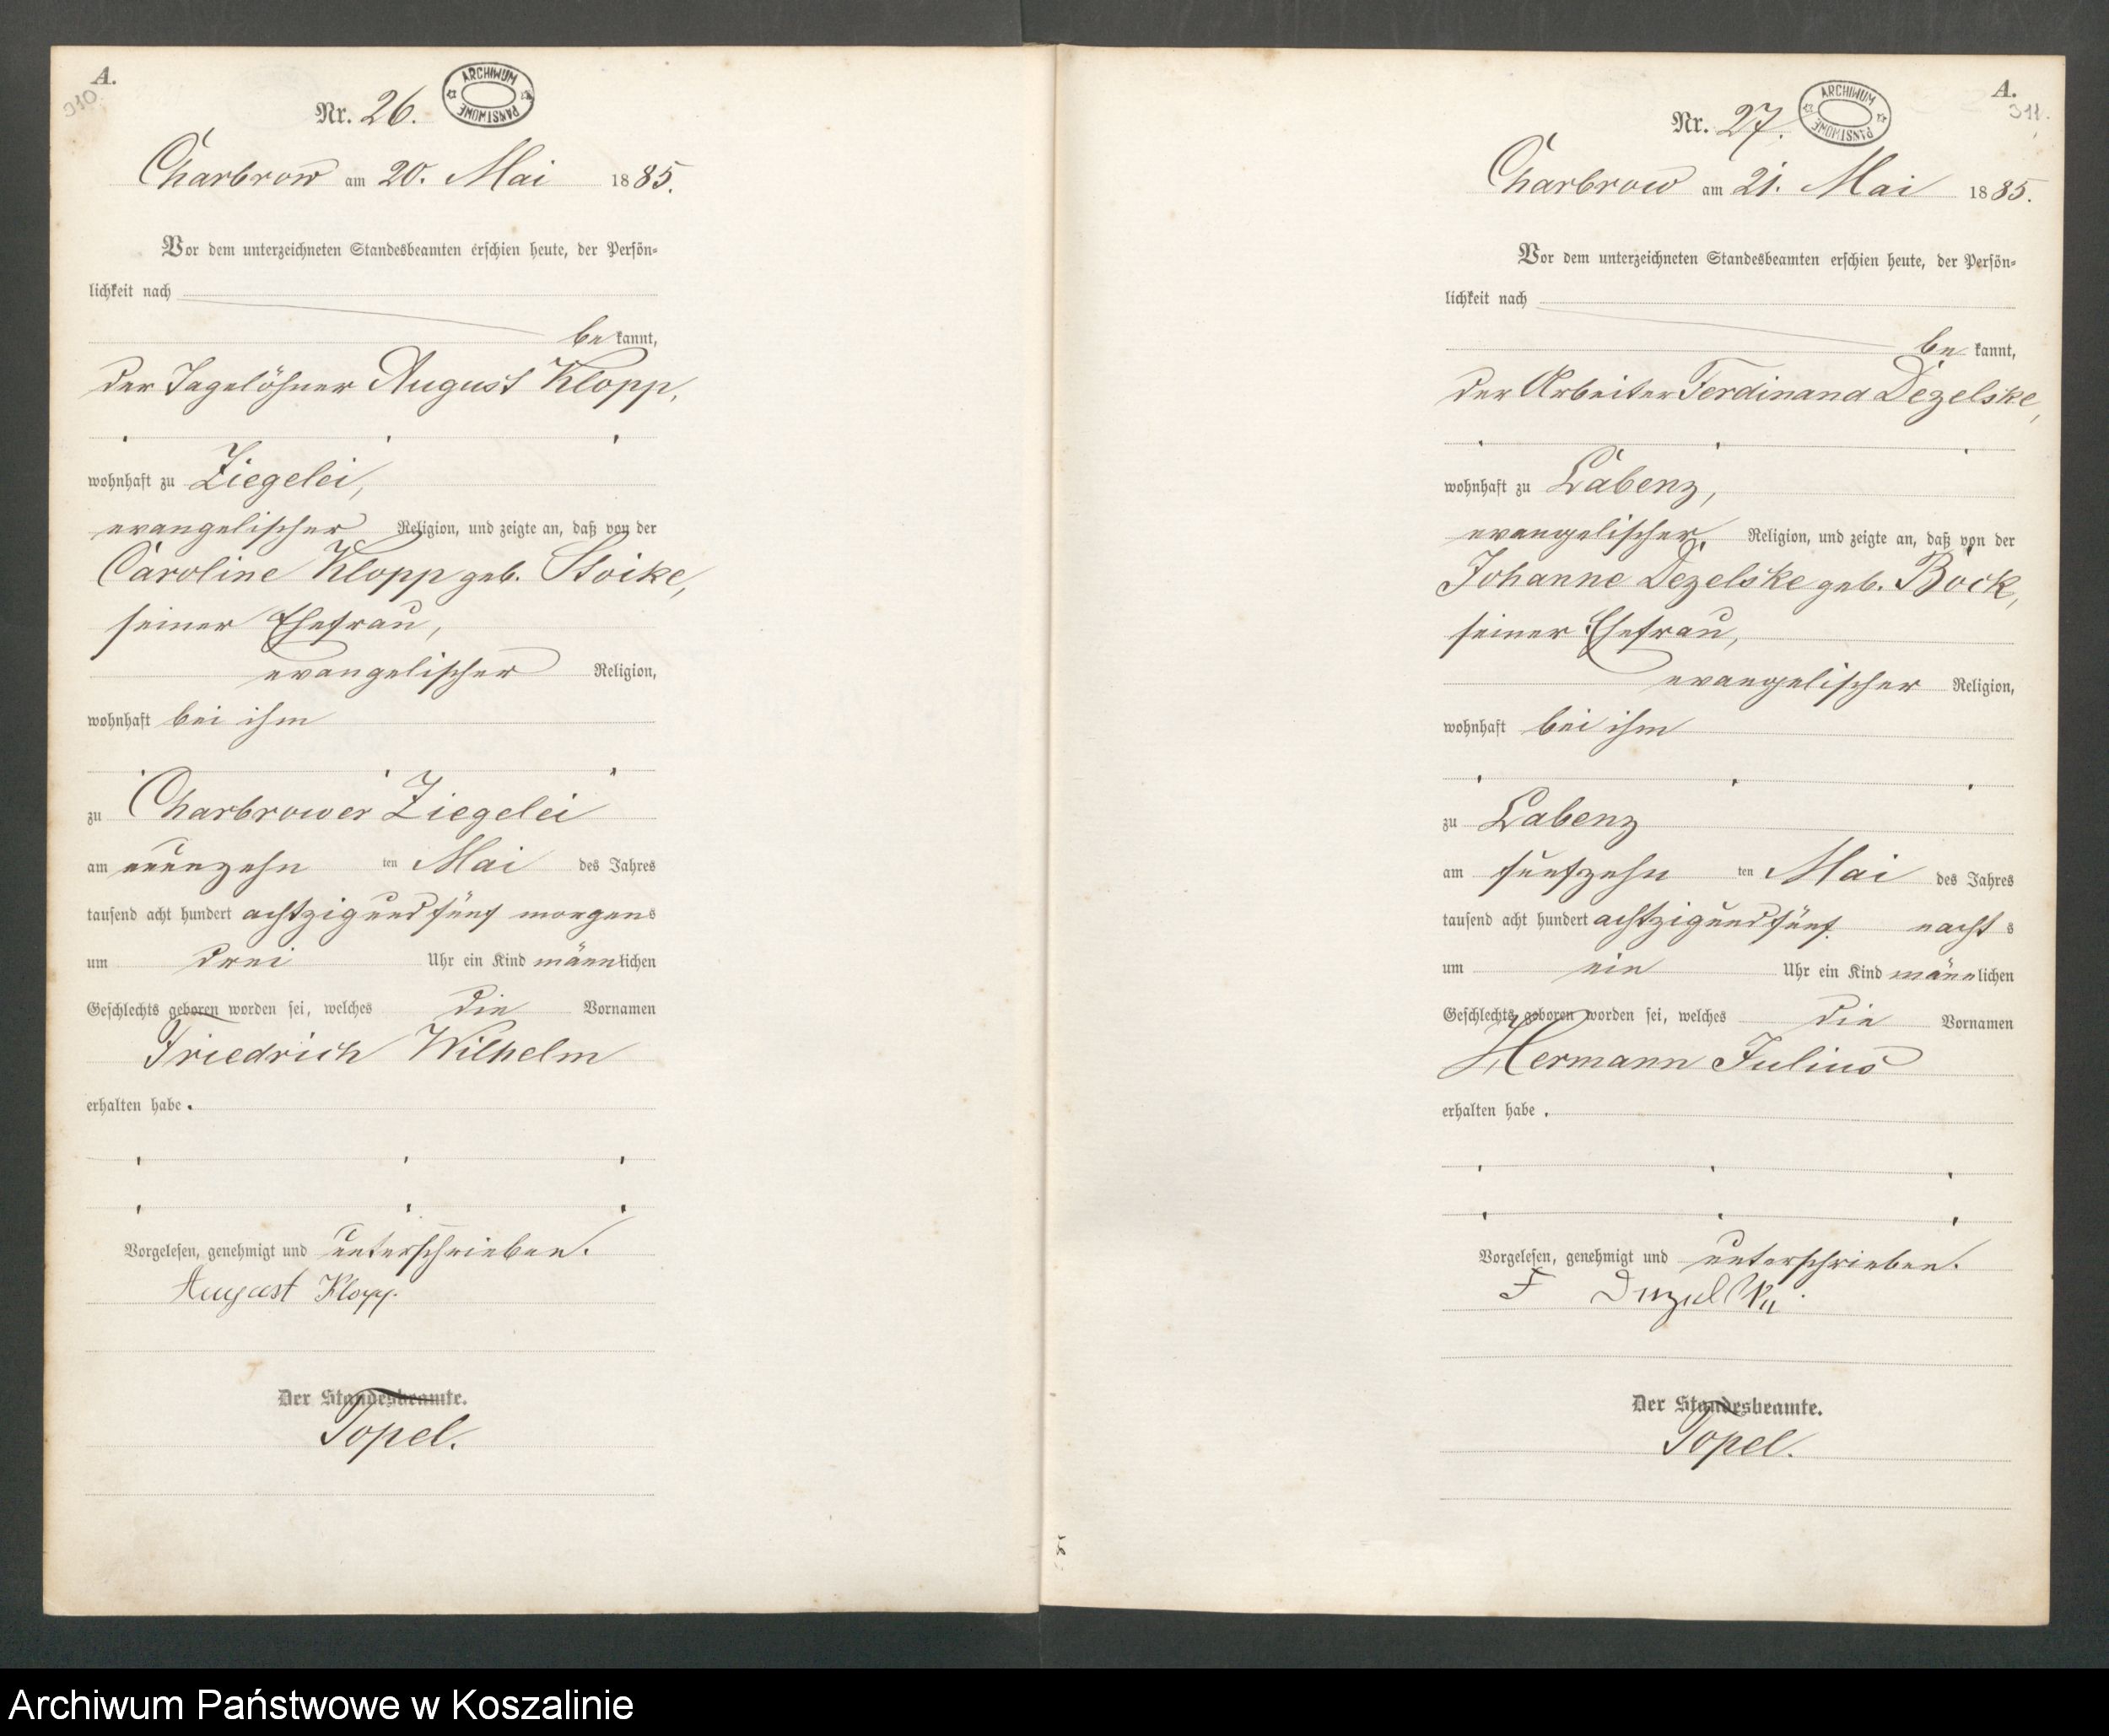 A.
310.
Nr. 26.
ARCHIWUM PAŃSTWOWE
Charbrow am 20. Mai 1885.
Vor dem unterzeichneten Standesbeamten erschien heute, der Persön-
lichkeit nach
be kannt,
der Tagelöhner August Klopp,
wohnhaft zu Ziegelei,
evangelischer Religion, und zeigte an, daß von der
Caroline Klopp geb. Stoike,
seiner Ehefrau,
evangelischer Religion,
wohnhaft bei ihm
zu Charbrower Ziegelei
am neunzehn ten Mai des Jahres
tausend acht hundert achtzig und fünf morgens
um drei Uhr ein Kind männlichen
Geschlechts geboren worden sei, welches die Vornamen
Friedrich Wilhelm
erhalten habe.
Vorgelesen, genehmigt und unterschrieben.
August Klopp.
Der Standesbeamte.
Topel.
A.
311.
Nr. 27.
ARCHIWUM PAŃSTWOWE
Charbrow am 21. Mai 1885.
Vor dem unterzeichneten Standesbeamten erschien heute, der Persön-
lichkeit nach
be kannt,
der Arbeiter Ferdinand Dezelske,
wohnhaft zu Labenz,
evangelischer Religion, und zeigte an, daß von der
Johanne Dezelske geb. Bock,
seiner Ehefrau,
evangelischer Religion,
wohnhaft bei ihm
zu Labenz
am fünfzehn ten Mai des Jahres
tausend acht hundert achtzig und fünf nachts
um ein Uhr ein Kind männlichen
Geschlechts geboren worden sei, welches die Vornamen
Hermann Julius
erhalten habe.
Vorgelesen, genehmigt und unterschrieben.
F Dezelske
Der Standesbeamte.
Topel.
Archiwum Państwowe w Koszalinie